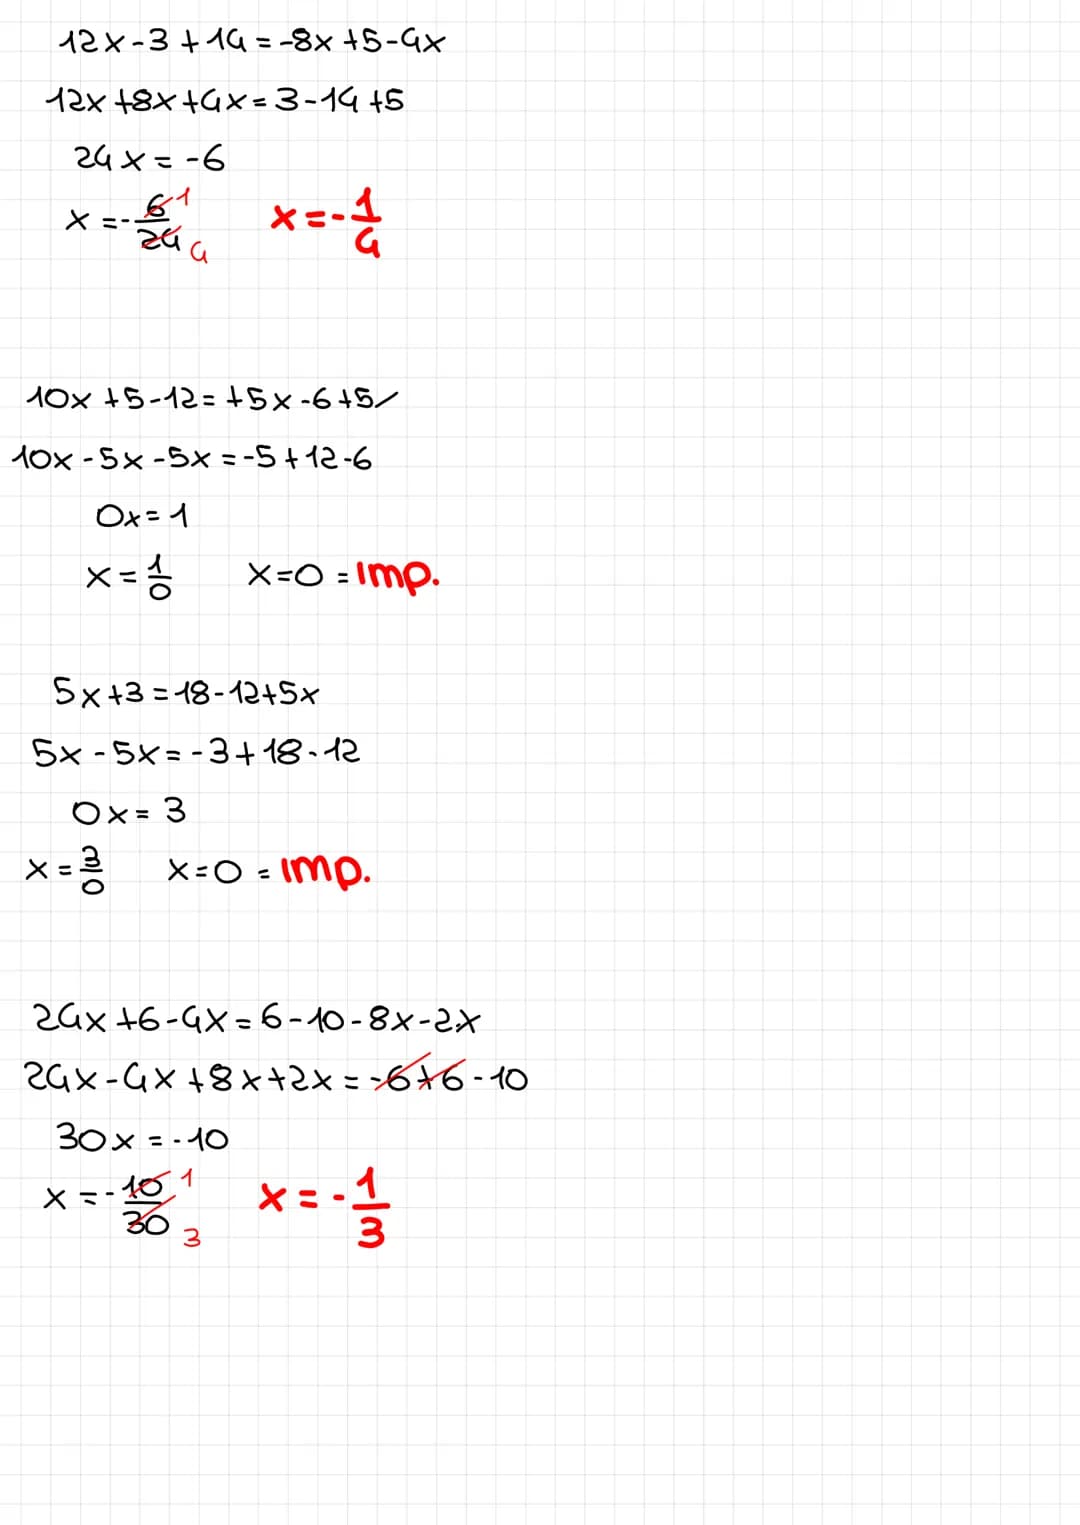 12x-3+14=-8x+5-4x
12x+8x+4x=3-14+5
24x=-6
x=-6/24 1 4 x=-1/4
10x+5-12=+5x-6+5
10x-5x-5x=-5+12-6
0x=1
x=1/0 x=0=Imp.
5x+3=18-12+5x
5x-5x=-3+18-12
0x=3
x=3/0 x=0=Imp.
24x+6-4x=6-10-8x-2x
24x-4x+8x+2x=-6+6-10
30x=-10
x=-10/30 1 3 x=-1/3